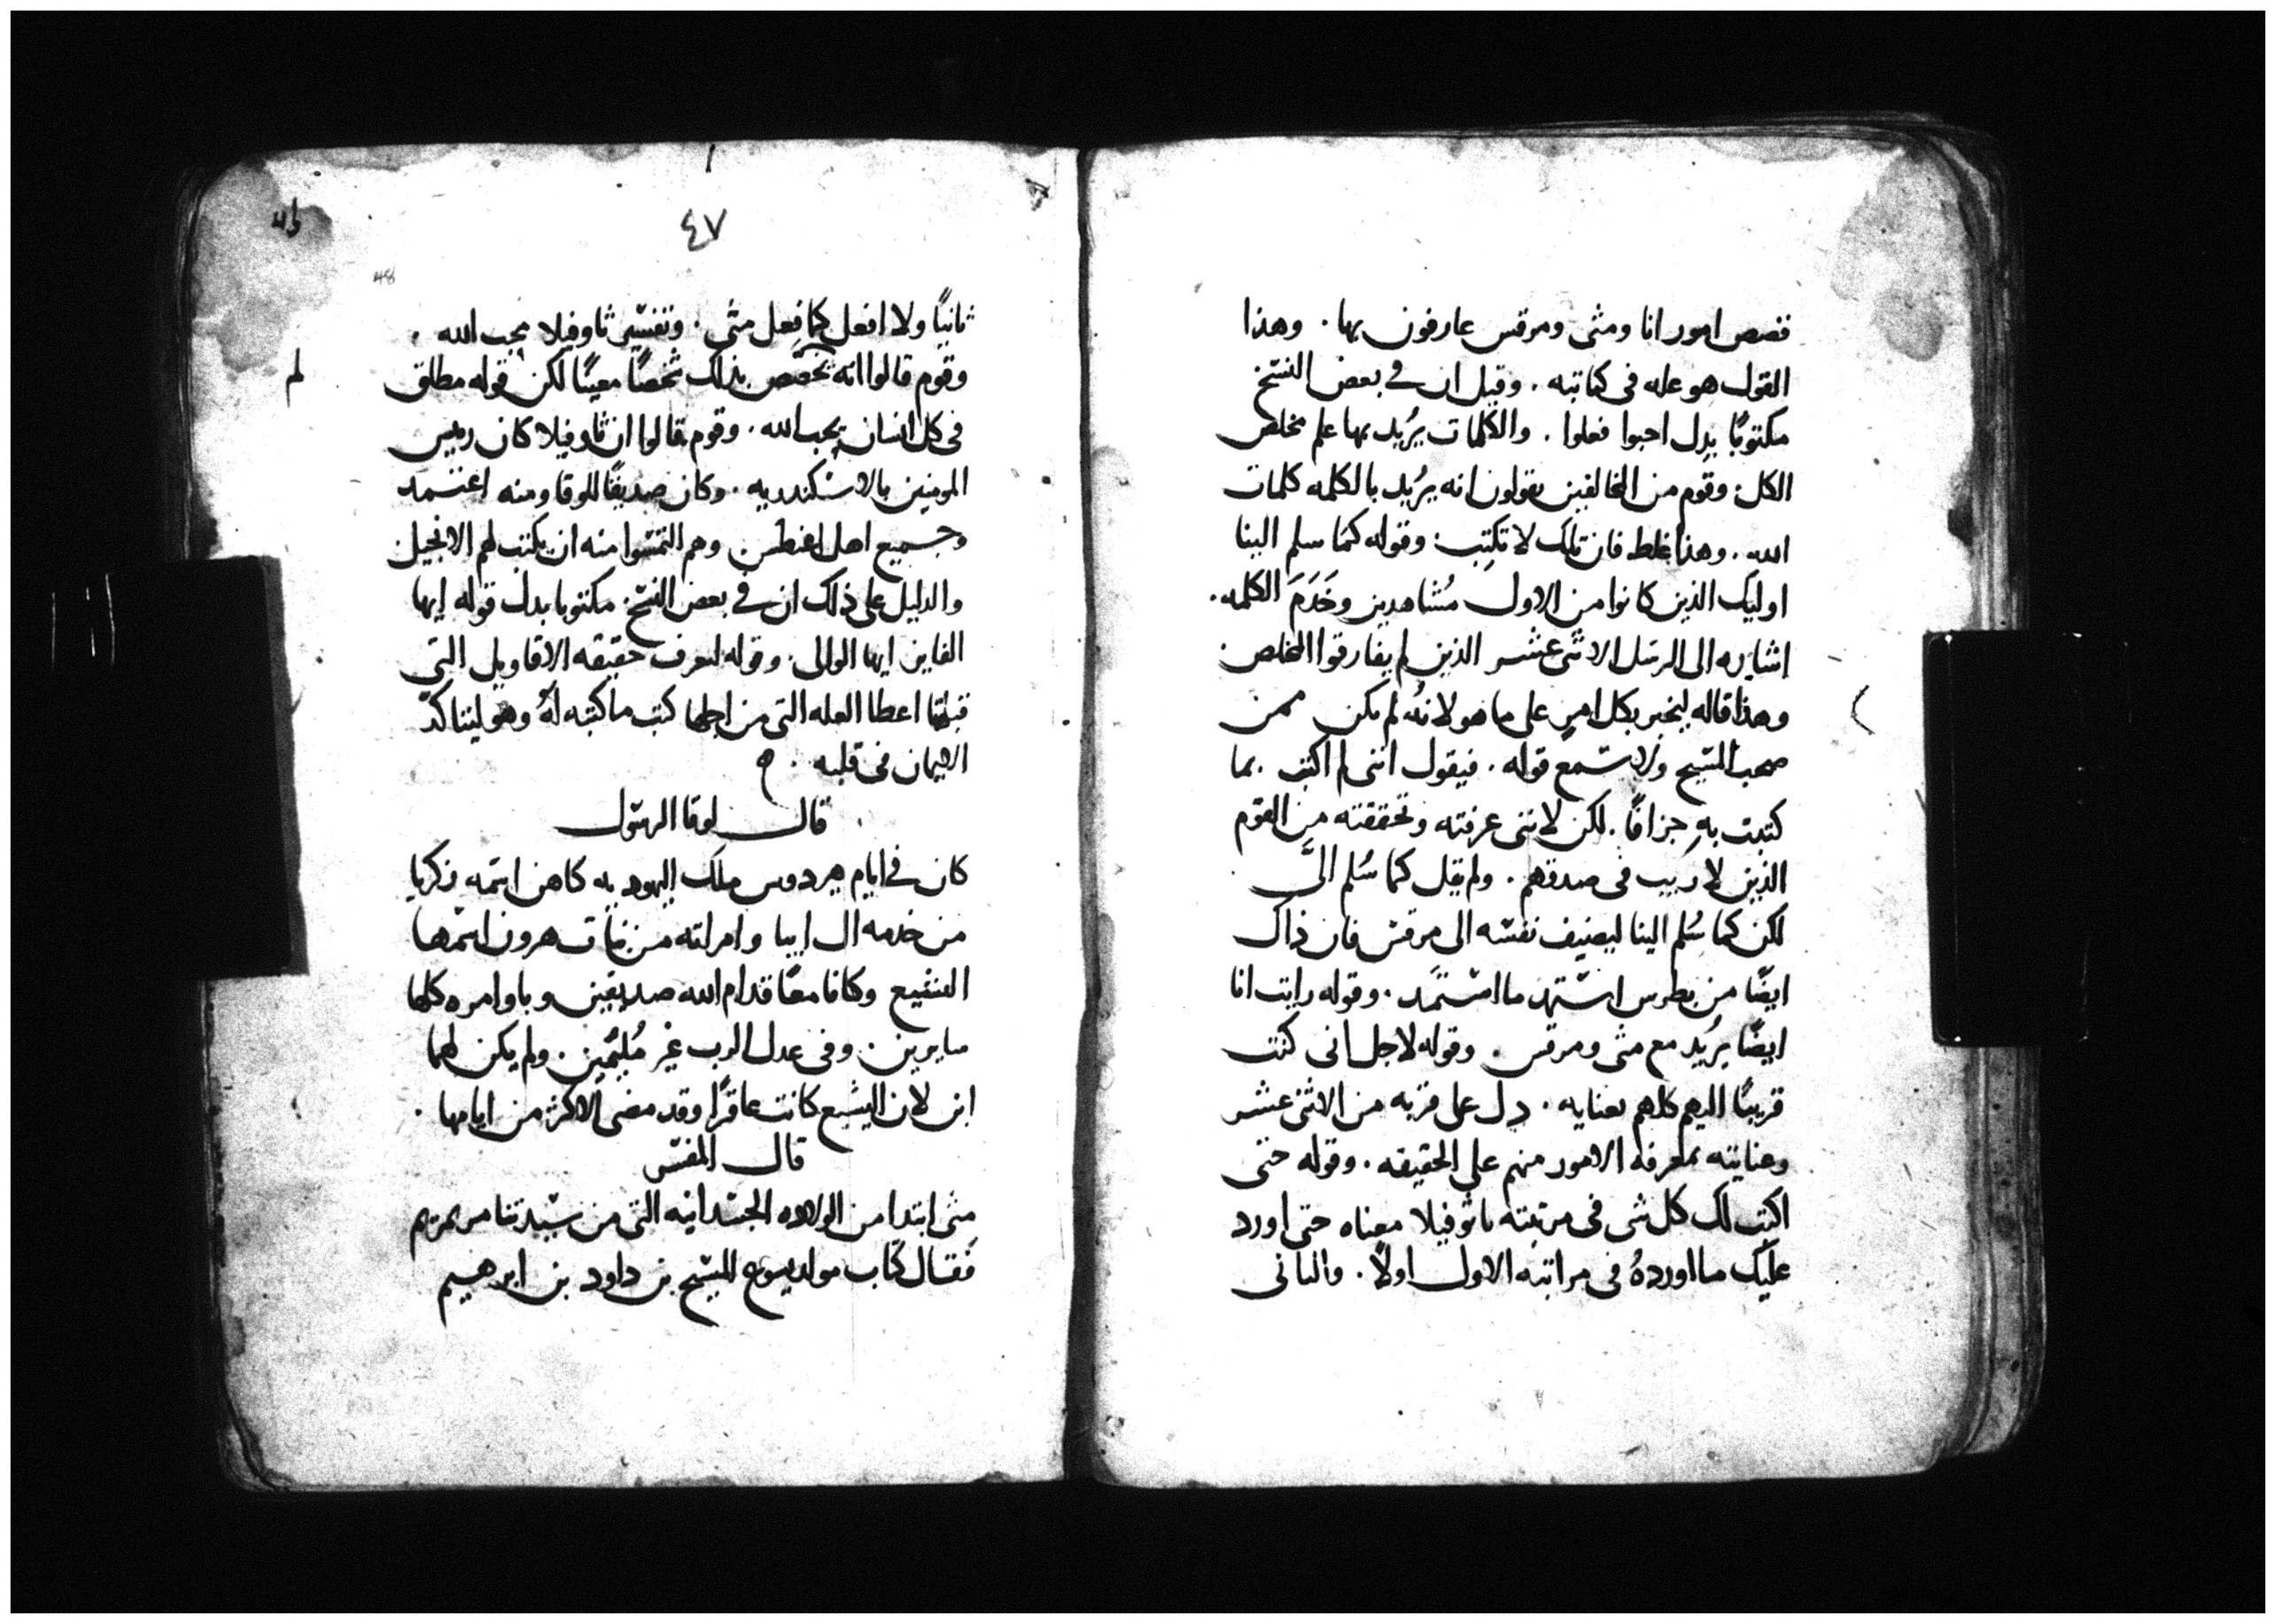 قصص امور انا ومتى ومرقس عارفون بها . وهذا
القول هو عله فى كتابته . وقيل ان فى بعض النسخ
مكتوبًا بدل احبوا فعلوا . والكلمات يُريد بها علم مخلص
الكل : وقوم من المخالفين يقولون انه يُريد بالكلمه كلمات
الله . وهذا غلط فان تلك لا تكتب : وقوله كما سلم الينا
اوليك الذين كانوا من الاول مُشاهدين وخَدَمَ الكلمه .
اشاره الى الرسل الاثنى عشر الذين لم يفارقوا المخلص .
وهذا قاله ليخبر بكل امرٍ على ما هو لانهُ لم يكن ممن
صحب المسيح ولا سمع قوله . فيقول اننى لم اكتب بما
كتبت بهِ جزافًا . لكن لاننى عرفته وتحققته من القوم
الذين لا ريب فى صدقهم . ولم يقل كما سُلم الىَّ
لكن كما سُلم الينا ليضيف نفسه الى مرقس فان ذاك
ايضًا من بطرس استمد ما استمَد . وقوله رايت انا
ايضًا يُريد مع متى ومرقس . وقوله لاجل انى كنت
قريبًا اليهم كلهم بعنايه . دل على قربه من الاثنى عشر
وعنايته بمعرفة الامور منهم على الحقيقه . وقوله حتى
اكتب لك كل شى فى مرتبته ياثوفيلا معناه حتى اورد
عليك ما اوردهُ فى مراتبه الاول اولًا . والثانى
٤٧
48
ثانيًا ولا افعل كما فعل متى . وتفسير ثاوفيلا محب الله .
وقوم قالوا انه يخصص بذلك شخصًا معينًا لكن قوله مطلق
فى كل انسان يحب الله . وقوم قالوا ان ثاوفيلا كان رييس
المومنين بالاسكندريه . وكان صديقًا للوقا ومنه اعتمد
وجميع اهل اغنطس وهم التمسوا منه ان يكتب لهم الانجيل
والدليل على ذلك ان فى بعض النسخ . مكتوبا بدل قوله ايها
الفاين ايها الوالى . وقوله لتعرف حقيقه الاقاويل التى
قبلتها اعطا العله التى من اجلها كتب ما كتبه لهُ وهو ليتاكد
الايمان فى قلبه . ه
قال لوقا الرسول
كان فى ايام هيردوس ملك اليهوديه كاهن اسمه زكريا
من خدمه ال ابيا وامراته من بنات هرون اسمها
اليشبع وكانا معًا قدام الله صديقين وباوامره كلها
سايرين . وفى عدل الرب غير مُليمَين . ولم يكن لهما
ابن لان اليشبع كانت عاقرًا وقد مضى الاكثر من ايامها .
قال المفسر
متى ابتدا من الولاده الجسدانيه التى من سيدتنا مرتمريم
فقال كتاب مولد يسوع المسيح بن داود بن ابرهيم